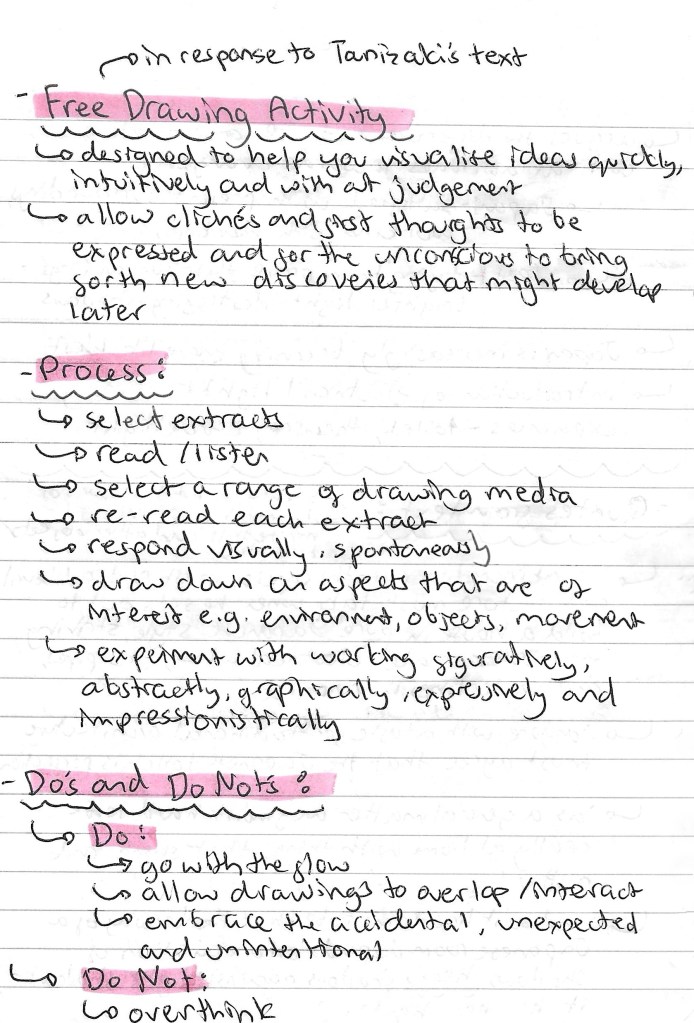 in response to Tanizaki's text
- Free Drawing Activity
↳ designed to help you visualise ideas quickly,
intuitively and with at judgement
↳ allow clichés and first thoughts to be
expressed and for the unconscious to bring
forth new discoveries that might develop
later
- Process:
↳ select extracts
↳ read / listen
↳ select a range of drawing media
↳ re-read each extract
↳ respond visually, spontaneously
↳ draw down on aspects that are of
interest e.g. environment, objects, movement
↳ experiment with working figuratively,
abstractly, graphically, expressively and
impressionistically
- Do's and Do Nots:
↳ Do:
↳ go with the flow
↳ allow drawings to overlap / interact
↳ embrace the accidental, unexpected
and unintentional
↳ Do Not:
↳ overthink